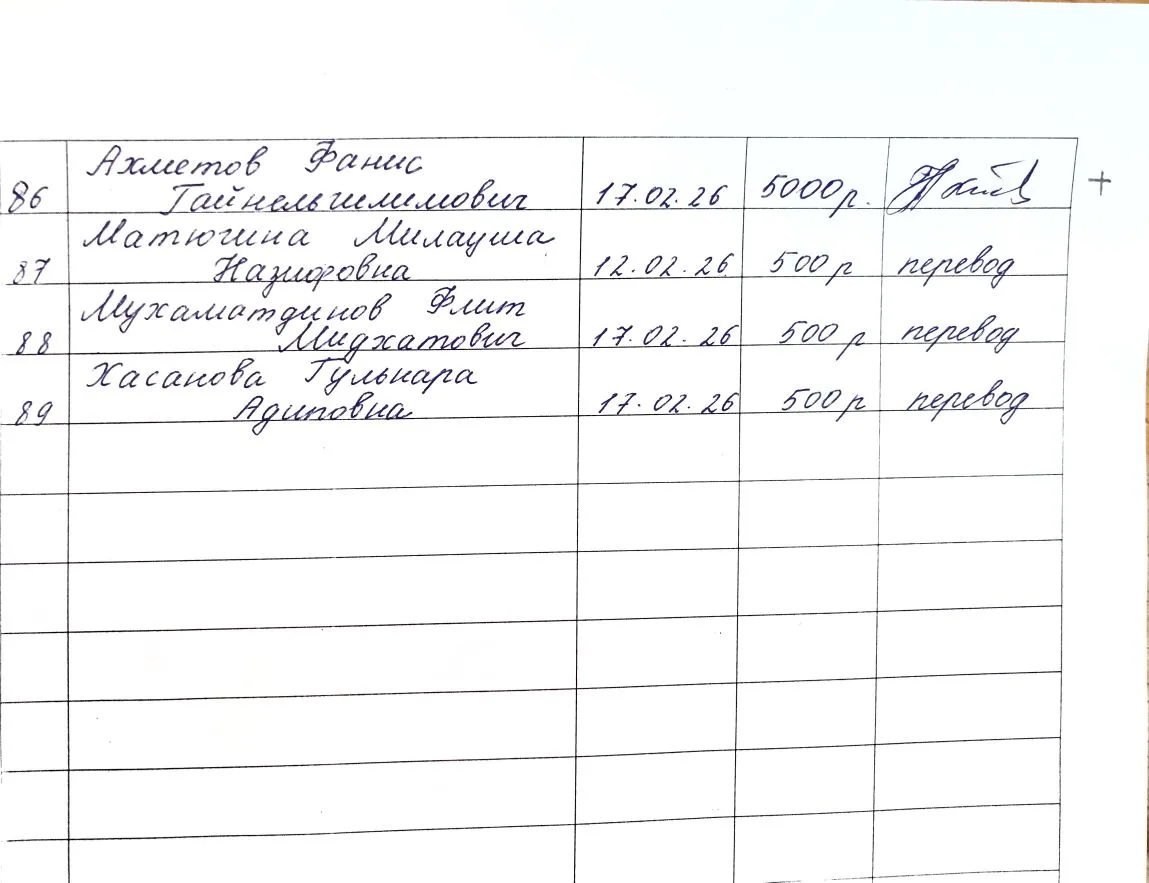 Ахметов Фанис
86 Гайнельгилимович 17.02.26 5000р. +
Матюгина Милауша
87 Назифовна 12.02.26 500р перевод
Мухаматдинов Флит
88 Мидхатович 17.02.26 500р перевод
Хасанова Гульнара
89 Адиповна 17.02.26 500р перевод